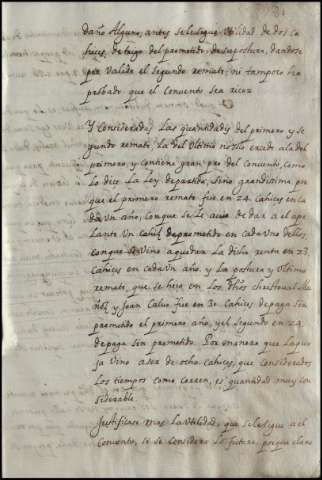 daño Alguno, antes se le sigue Utilidad de dos ca
hices, de trigo del prometido, de su postura, dandose
por valido el segundo remate, ni tampoco ha
probado que el Convento sea rico
Y Consideradas Las quantidades del primero y se
gundo remate, La del Ultimo no solo excede a la del
primero, y contiene gran pro del Convento, Como
Lo dice La Ley de partida, sino grandissima, por
que el primero remate fue en 24. Cahices en Ca
da Un año, Con que se Le avia de dar a el ape
Lante Un Cahiz de prometido en cada Uno dellos,
Conque Vino a quedar La dicha renta en 23.
Cahices en cada Un año. y La postura y Ultimo
remate, que se hizo en Los dichos Christoval
y Juan Calvo fue en 30 Cahices de paga sin
prometido el primero año, y el Segundo en 24
de paga sin prometido. Por manera que La pu
ja Vino a ser de ocho Cahices, que considerados
Los tiempos como Corren, es quantidad muy con
siderable.
Justificase mas La Utilidad, que se Le sigue a el
Convento, si se considera Lo futuro, porque claro